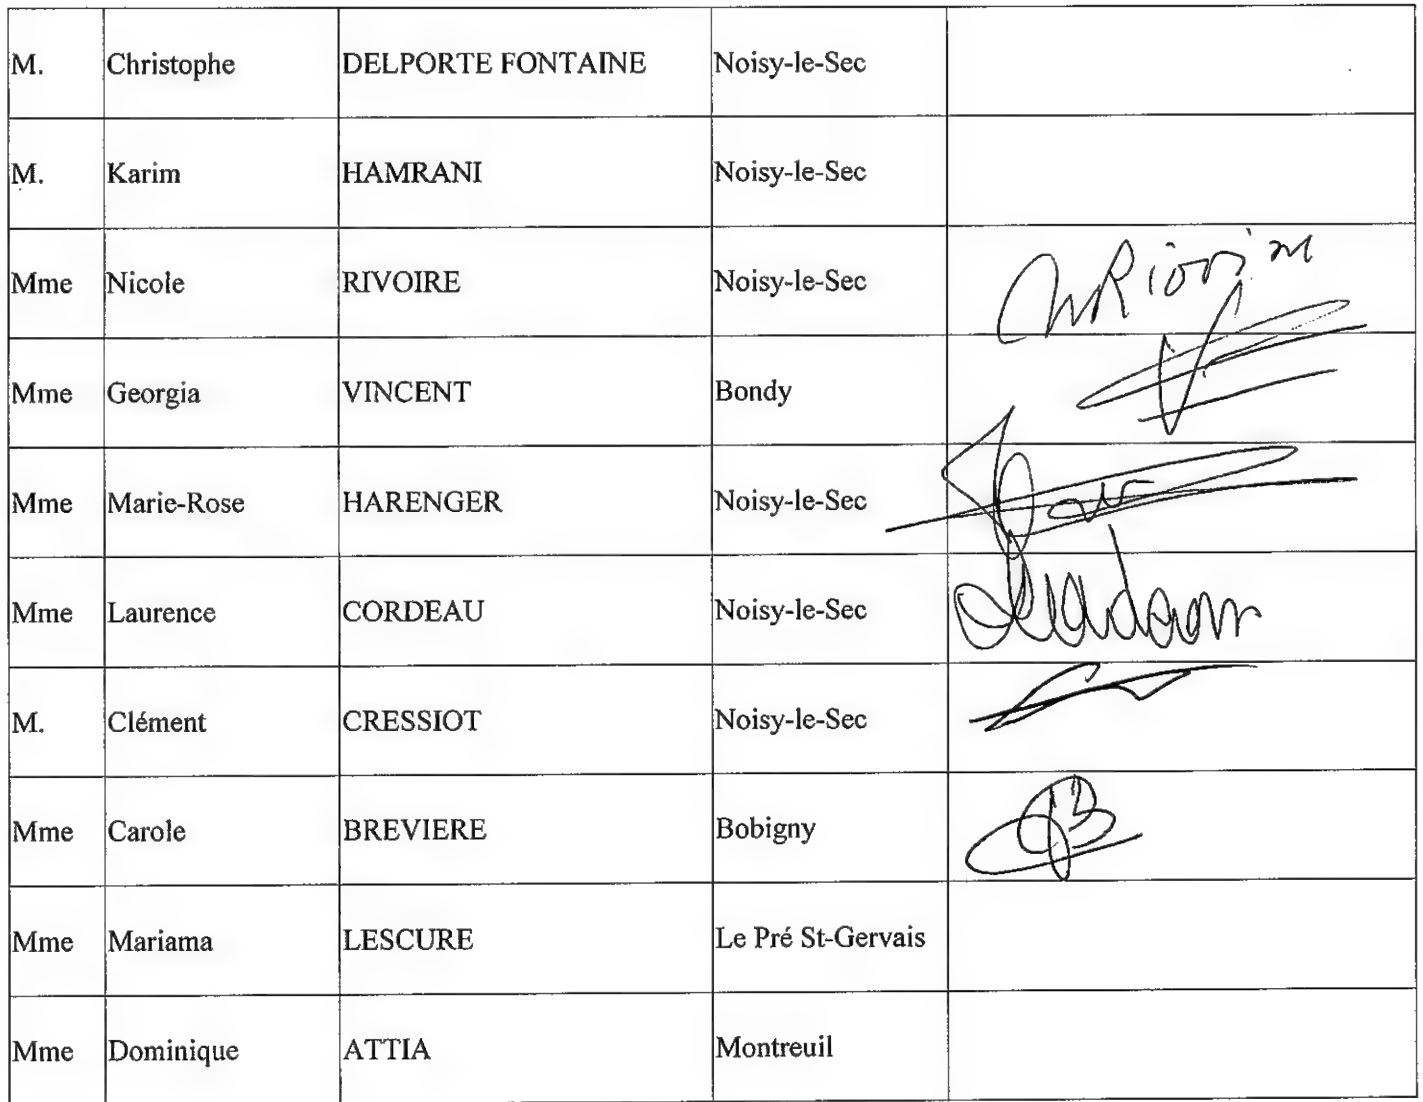 M. Christophe DELPORTE FONTAINE Noisy-le-Sec
M. Karim HAMRANI Noisy-le-Sec
Mme Nicole RIVOIRE Noisy-le-Sec
Mme Georgia VINCENT Bondy
Mme Marie-Rose HARENGER Noisy-le-Sec
Mme Laurence CORDEAU Noisy-le-Sec
M. Clément CRESSIOT Noisy-le-Sec
Mme Carole BREVIERE Bobigny
Mme Mariama LESCURE Le Pré St-Gervais
Mme Dominique ATTIA Montreuil